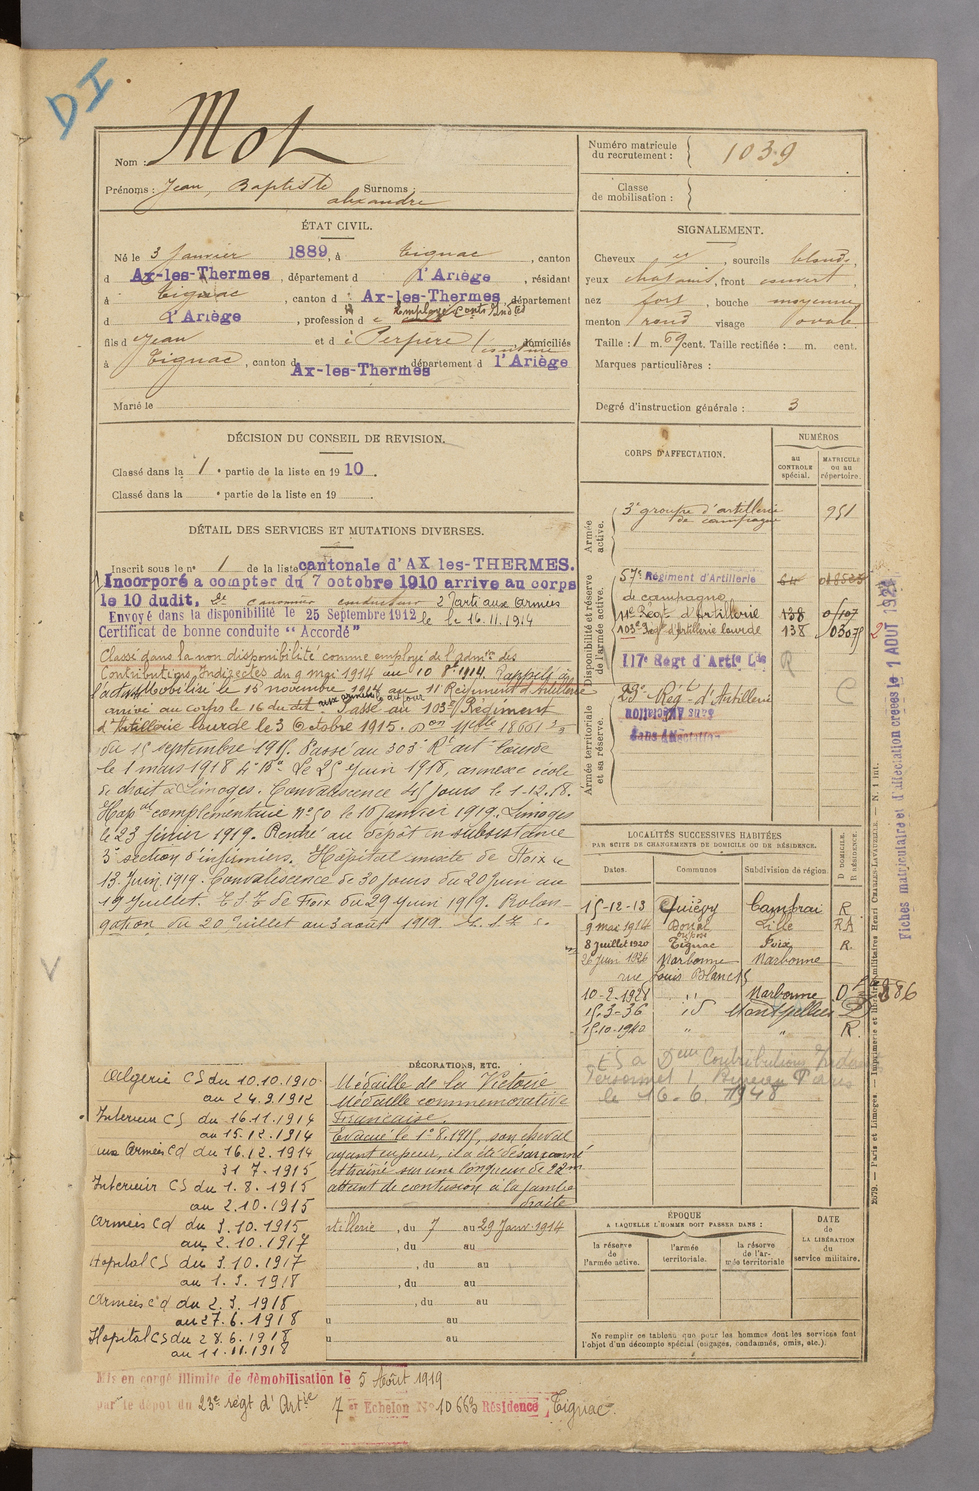 DI
Nom : Mot
Prénoms : Jean, Baptiste Surnoms :
alexandre
Numéro matricule
du recrutement : 1039
Classe
de mobilisation :
ÉTAT CIVIL.
Né le 3 Janvier 1889, à Tignac, canton
d Ax-les-Thermes, département d l'Ariège, résidant
à Tignac, canton d Ax-les-Thermes, département
d l'Ariège, profession d Employé Conts Indtes
fils d Jean et d Perpère domiciliés
à Tignac, canton d Ax-les-Thermes département d l'Ariège
Marié le
SIGNALEMENT.
Cheveux et, sourcils blonds,
yeux chatains, front couvert,
nez fort, bouche moyenne
menton rond visage ovale
Taille : 1 m. 69 cent. Taille rectifiée : m. cent.
Marques particulières :
Degré d'instruction générale : 3
DÉCISION DU CONSEIL DE REVISION.
Classé dans la 1e partie de la liste en 1910.
Classé dans la e partie de la liste en 19
DÉTAIL DES SERVICES ET MUTATIONS DIVERSES.
Inscrit sous le n° 1 de la liste cantonale d'AX les-THERMES.
Incorporé a compter du 7 octobre 1910 arrive au corps
le 10 dudit, 2e canonnier conducteur Parti aux Armées
Envoyé dans la disponibilité le 25 Septembre 1912 le 16.11.1914
Certificat de bonne conduite "Accordé"
Classé dans la non disponibilité comme employé de l'admon des
Contributions Indirectes du 9 mai 1914 au 10 8bre 1914. Rappelé à
l'activité Mobilisé le 15 novembre 1914 au 11 Régiment d'Artillerie
arrivé au corps le 16 du dit aux armées le dit jour Passé au 103e Régiment
d'Artillerie lourde le 3 Octobre 1915.
du 15 septembre 1917. Passé au 303e R. art. lourde
le 1 mars 1918 Le 25 Juin 1918, annexe école
de droit à Limoges. Convalescence 45 jours le 1-12.18.
Hopal complémentaire n° 50 le 10 Janvier 1919. Limoges
le 23 février 1919. Rentré au dépôt en subsistance
3e section d'infirmiers. Hôpital annexe de Foix le
13. Juin 1919. Convalescence de 30 jours du 20 Juin au
19 Juillet. de Foix du 29 Juin 1919. Prolon-
gation du 20 Juillet au 3 août 1919.
CORPS D'AFFECTATION.
NUMÉROS
au CONTROLE spécial.
MATRICULE ou au répertoire.
Armée active.
3e groupe d'artillerie
de campagne 951
Disponibilité et réserve de l'armée active.
57e Régiment d'Artillerie 64
de campagne
11e Régt d'Artillerie 138
103e Régt d'Artillerie lourde 138
117e Régt d'Artie Lde R
Armée territoriale et sa réserve.
23e Regt d'Artillerie
sans Affectation
Sans Affectation
Fiches matriculaire et d'affectation créées le 1 AOUT 192
LOCALITÉS SUCCESSIVES HABITÉES
PAR SUITE DE CHANGEMENTS DE DOMICILE OU DE RÉSIDENCE.
Dates. Communes Subdivision de région. D DOMICILE. R RÉSIDENCE.
15-12-13 Quiévy Cambrai R
9 mai 1914 Lille
8 Juillet 1920 Tignac Foix R.
26 Juin 1926 Narbonne Narbonne
rue Louis Blanc 15
10-2-1928 " Narbonne D
15-3-36 id Montpellier
15-10-1940 " " R.
Contributions Indirectes
Personnel 1. Bureau Paris
le 16-6. 1948
Algerie CS du 10.10.1910
au 24.9.1912
Interieur CS du 16.11.1914
au 15.12.1914
aux Armées Cd du 16.12.1914
31 7.1915
Interieur CS du 1.8.1915
au 2.10.1915
Armées Cd du 3.10.1915
au 2.10.1917
Hopital CS du 3.10.1917
au 1.3.1918
Armées Cd du 2.3.1918
au 27.6.1918
Hopital CS du 28.6.1918
au 11.11.1918
DÉCORATIONS, ETC.
Médaille de la Victoire
Médaille commémorative
Française.
Evacué le 1er 8.1915, son cheval
ayant eu peur, il a été désarçonné
et traîné sur une longueur de 22m
atteint de contusion à la jambe
droite
tillerie, du 7 au 29 Janv 1914
, du au
, du au
, du au
, du au
u au
u au
ÉPOQUE
A LAQUELLE L'HOMME DOIT PASSER DANS :
la réserve de l'armée active.
l'armée territoriale.
la réserve de l'armée territoriale
DATE de LA LIBÉRATION du service militaire.
Ne remplir ce tableau que pour les hommes dont les services font
l'objet d'un décompte spécial (engagés, condamnés, omis, etc.).
2679. — Paris et Limoges. — Imprimerie et librairie militaires Henri CHARLES-LAVAUZELLE. — N. 1 int.
Mis en congé illimité de démobilisation le 5 Août 1919
par le dépôt du 23e régt d'Artie 7e Echelon N° 10663 Résidence Tignac